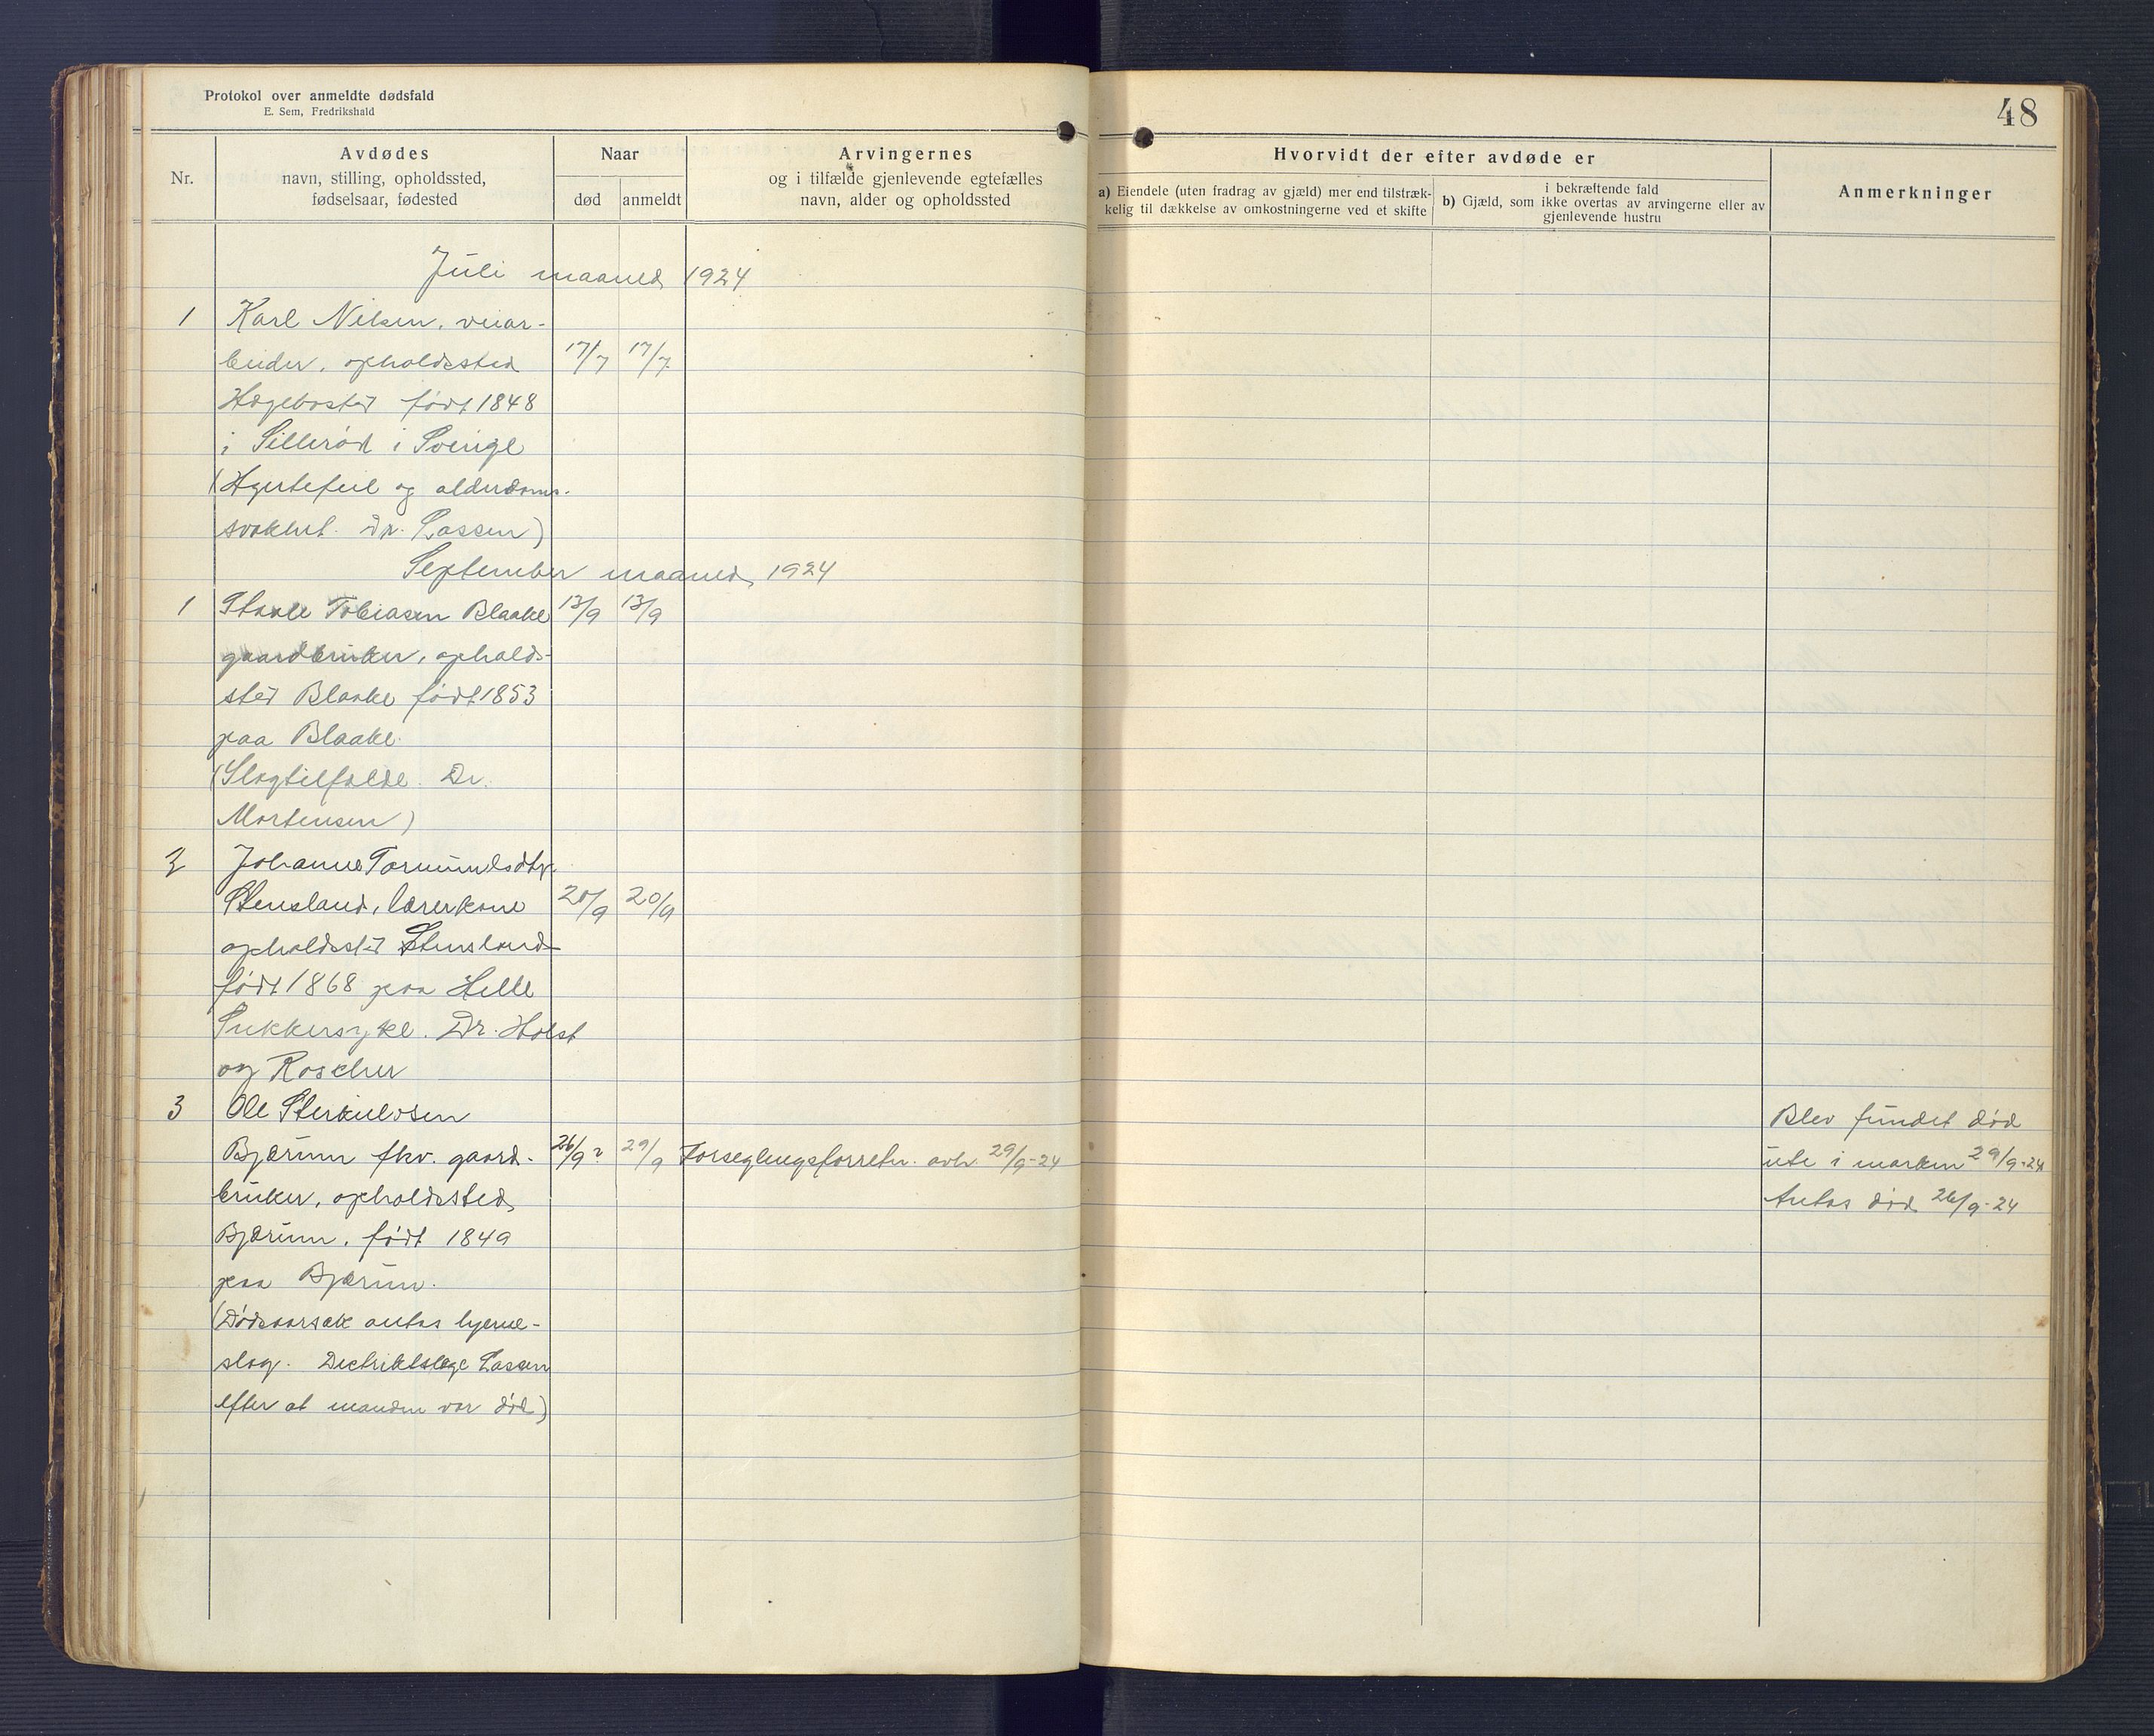 Protokol over anmeldte dødsfald
E. Sem, Fredrikshald
48
Nr.
Avdødes
navn, stilling, opholdssted,
fødselsaar, fødested
Naar
død
anmeldt
Arvingernes
og i tilfælde gjenlevende egtefælles
navn, alder og opholdssted
Hvorvidt der efter avdøde er
a) Eiendele (uten fradrag av gjæld) mer end tilstræk-
kelig til dækkelse av omkostningerne ved et skifte
i bekræftende fald
b) Gjæld, som ikke overtas av arvingerne eller av
gjenlevende hustru
Anmerkninger
Juli maaned 1924
1 Karl Nilsen, veiar-
beider, opholdssted 17/7 17/7
Hægebostad født 1848
i Sillerød i Sverige
(Hjertefeil og alderdoms-
svakhet. Dr. Lassen)
September maaned 1924
1 Ståvle Tobiasen Blaake 13/9 13/9
gaardbruker, ophalds-
sted Blaake født 1853
paa Blaake.
(Slagtilfælde. Dr.
Mortensen)
2 Johanne Tormundsdtr.
Stensland, lærerkone 20/9 20/9
opholdssted Stensland
født 1868 paa Helle
Sukkersyke. Dr. Holst
og Roscher
3 Ole Sterkulvsen
Bjærum fhv. gaard- 26/9? 29/9 Forseglingsforretn. avh. 29/9-24
bruker, opholdssted
Bjærum, født 1849
paa Bjærum.
(Dødsaarsak antas hjerne-
slag. Distriktslæge Lassen
efter at manden var død)
Blev fundet død
ute i marken 29/9-24
Antas død 26/9-24